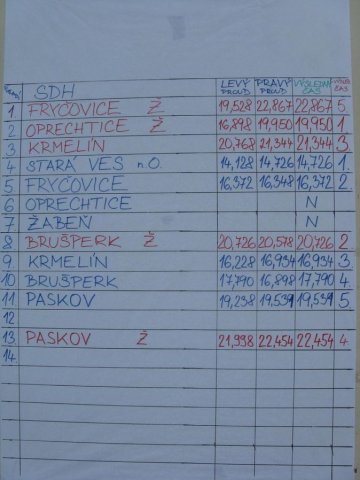 SDH LEVÝ PROUD PRAVÝ PROUD VÝSLEDNÝ ČAS
1 FRYČOVICE Ž 19,528 22,867 22,867 5
2 OPRECHTICE Ž 16,898 19,950 19,950 1
3 KRMELÍN 20,768 21,344 21,344 3
4 STARÁ VES n.O. 14,128 14,726 14,726 1
5 FRYČOVICE 16,372 16,348 16,372 2
6 OPRECHTICE N
7 ŽABEŇ N
8 BRUŠPERK Ž 20,726 20,578 20,726 2
9 KRMELÍN 16,228 16,934 16,934 3
10 BRUŠPERK 17,790 16,898 17,790 4
11 PASKOV 19,238 19,539 19,539 5
12
13 PASKOV Ž 21,938 22,454 22,454 4
14.